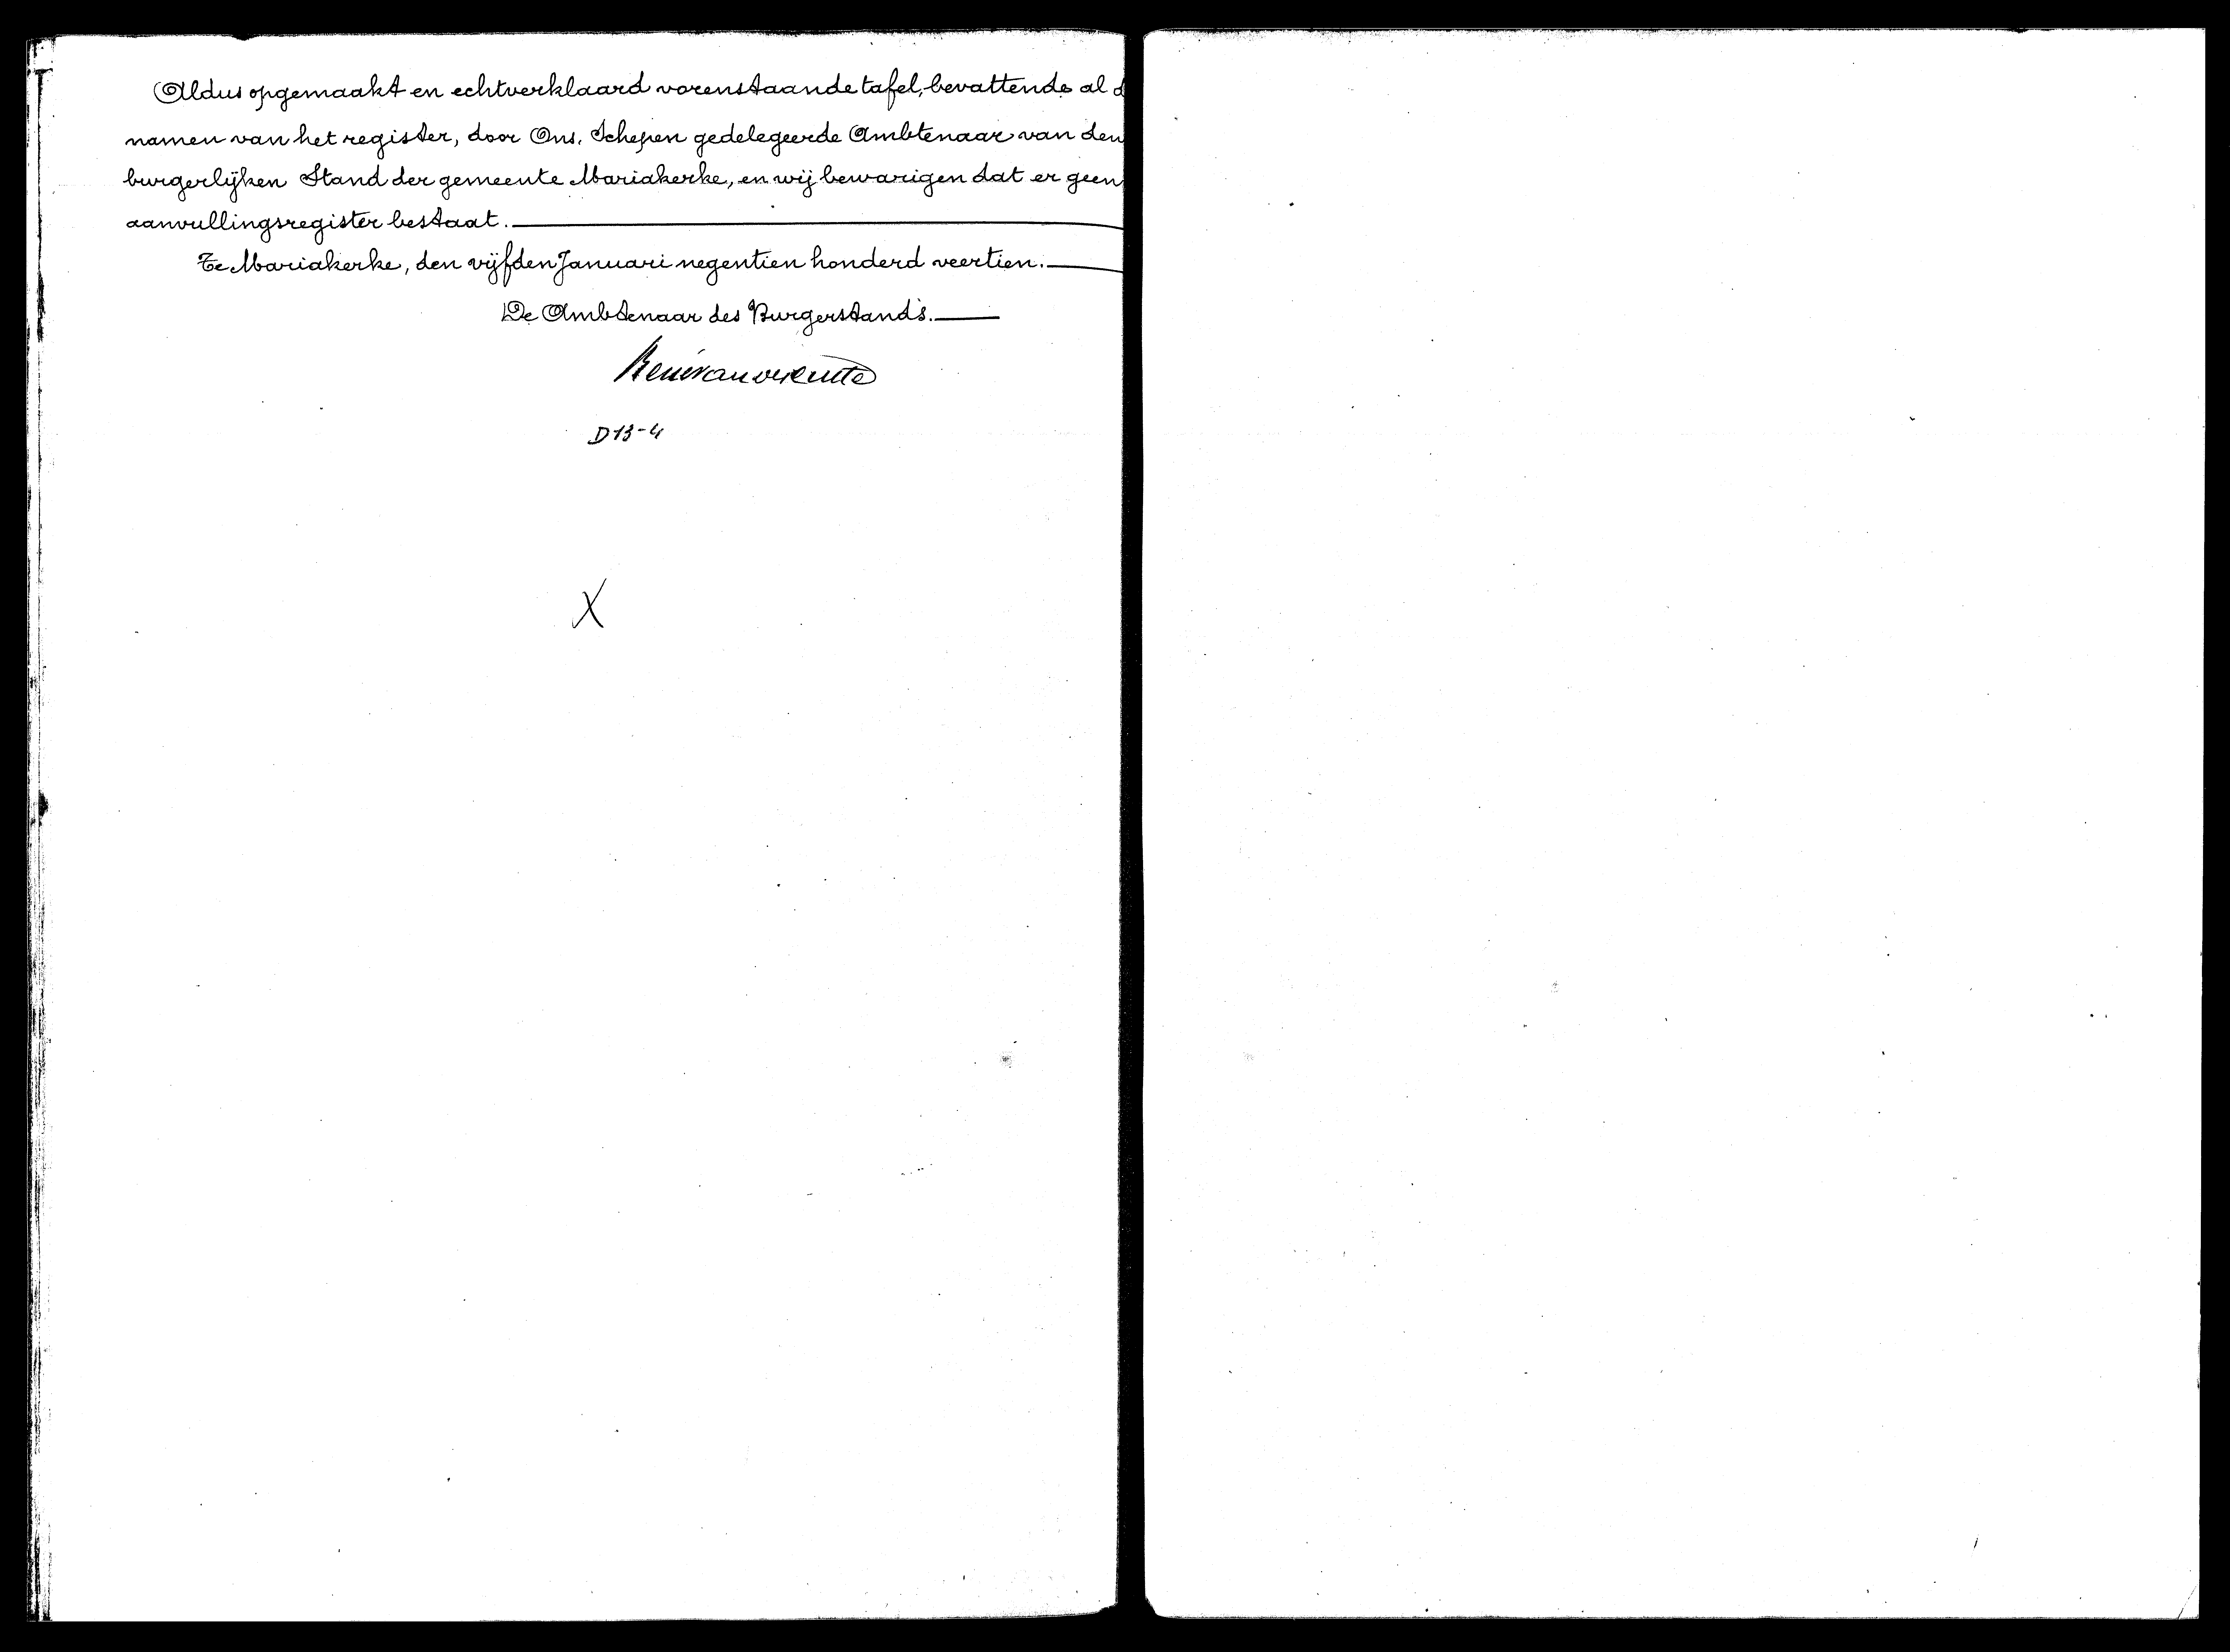 Aldus opgemaakt en echtverklaard vorenstaande tafel, bevattende al d
namen van het register, door Ons, Schepen gedelegeerde Ambtenaar van den
burgerlijken Stand der gemeente Mariakerke, en wij bewarigen dat er geen
aanvullingsregister bestaat.
Te Mariakerke, den vijfden Januari negentien honderd veertien.
De Ambtenaar des Burgerstands.
D 13-4
X